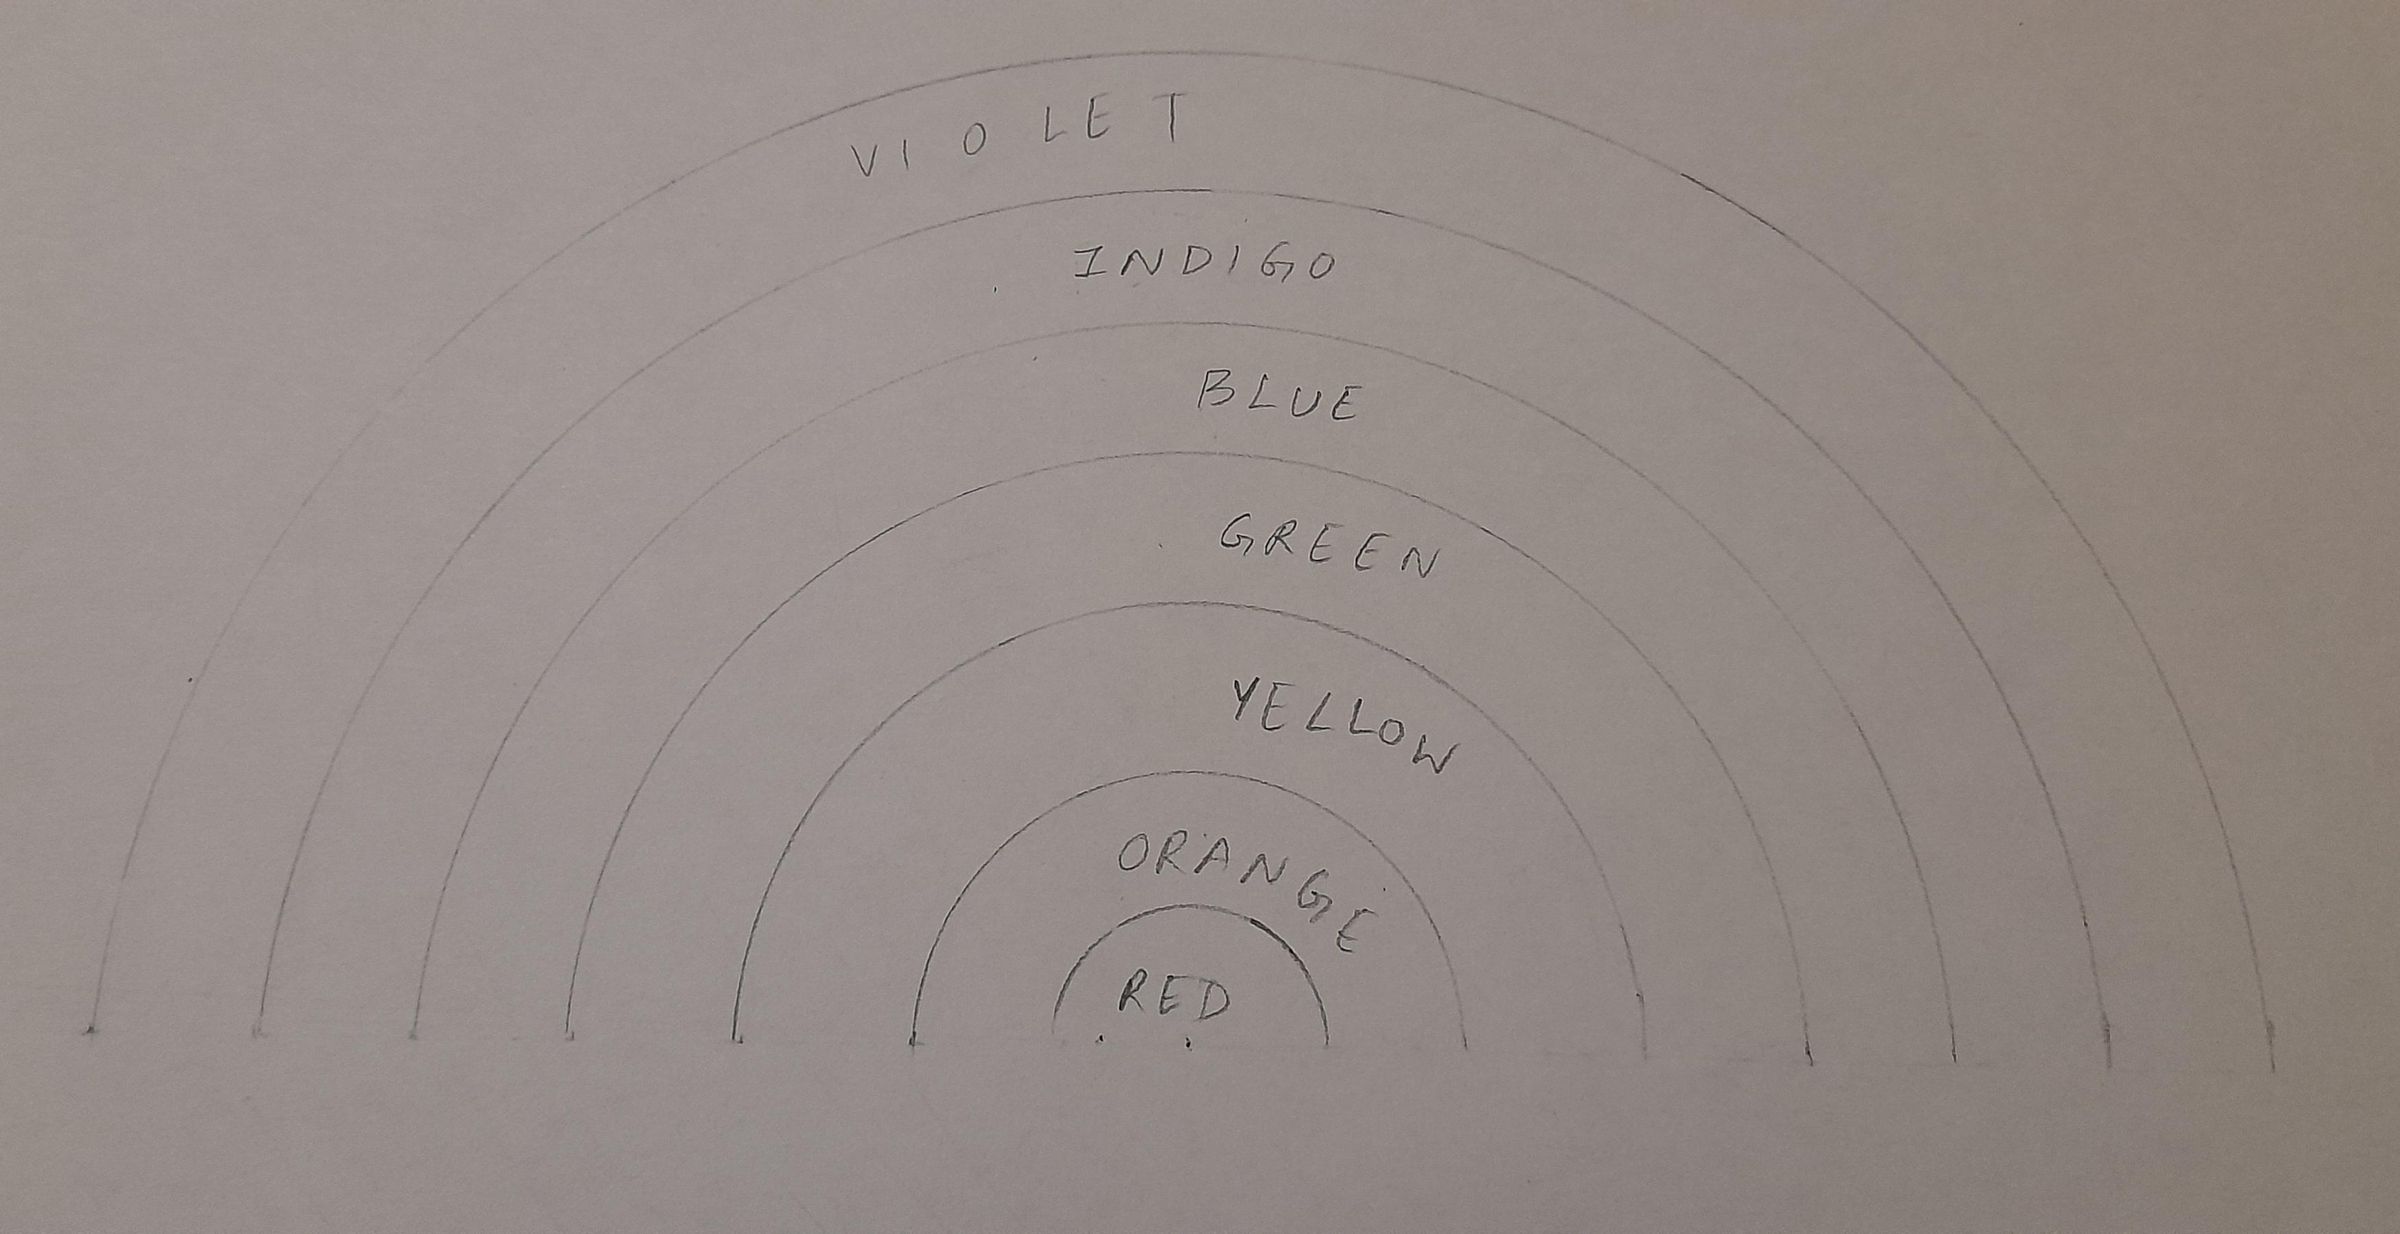 VIOLET
INDIGO
BLUE
GREEN
YELLOW
ORANGE
RED